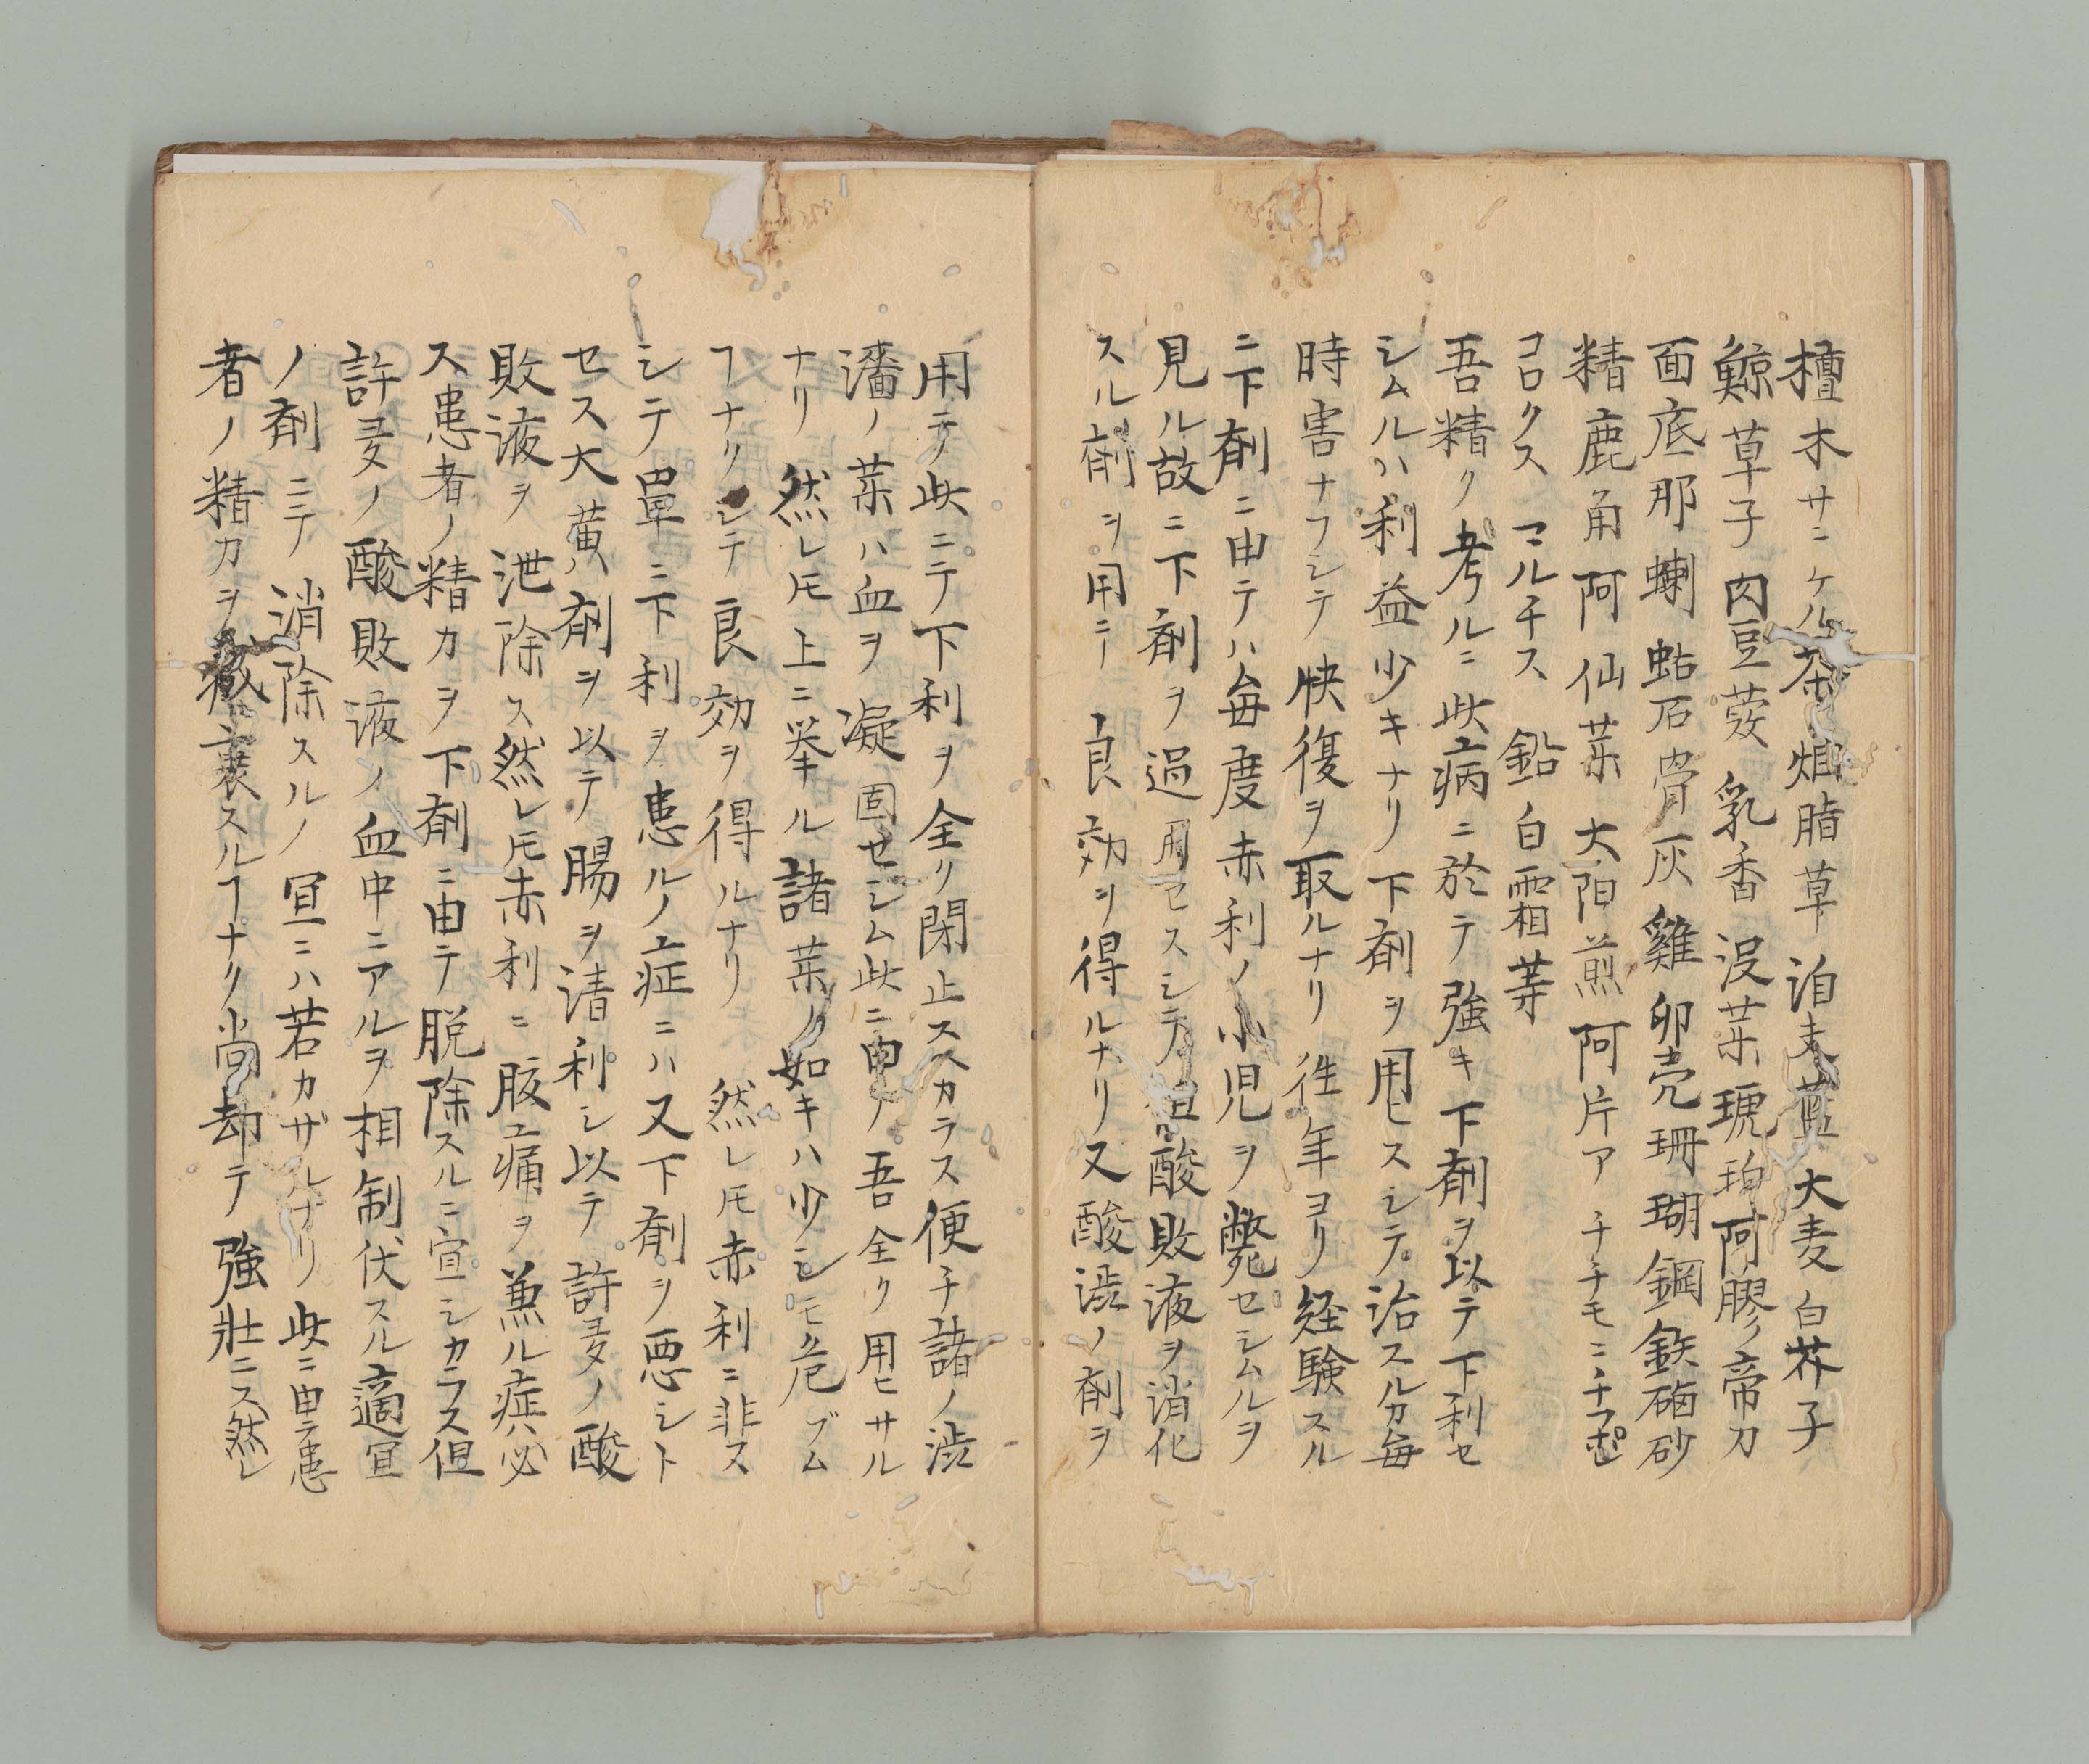 檀木サニケル茶 烟脂草 泊夫藍 大麦 白芥子
鯨草子 肉豆蔲 乳香 没薬 琥珀 阿膠 帝刀
面底那 蝲蛄石 骨灰 雞卵壳 珊瑚 鋼鉄 硇砂
精鹿角 阿仙薬 大阳煎 阿片 アチチモニチフ
コロクス マルチス 鉛白霜等
吾精ク考ルニ此病ニ於テ強キ下剤ヲ以テ下利セ
シムルハ利益少キナリ下剤ヲ用ヒスシテ治スルカ毎
時害ナフシテ快復ヲ取ルナリ徃年ヨリ経験スル
ニ下剤ニ由テハ毎度赤利ノ小児ヲ斃セシムルヲ
見ル故ニ下剤ヲ過用セスシテ但酸敗液ヲ消化
スル剤ヲ用ニテ良効ヲ得ルナリ又酸渋ノ剤ヲ
用テ此ニテ下利ヲ全ク閉止スヘカラス便チ諸ノ渋
濇ノ薬ハ血ヲ凝固セシム此ニ由ノ吾全ク用ヒサル
ナリ 然レ𪜈上ニ挙ル諸薬ノ如キハ少シモ危ブム
ヿナリシテ良効ヲ得ルナリ 然レ𪜈赤利ニ非ス
シテ単ニ下利ヲ患ルノ症ニハ又下剤ヲ悪シト
セス大黄ハ剤ヲ以テ腸ヲ清利シ以テ許多ノ酸
敗液ヲ泄除ス然レ𪜈赤利ニ腹痛ヲ兼ル症ハ必
ス患者ノ精力ヲ下剤ニ由テ脱除スルニ宜シカラス但
許多ノ酸敗液ノ血中ニアルヲ相制伏スル適宜
ノ剤ニテ消除スルノ宜ニハ若カザルナリ此ニ由テ患
者ノ精力ヲ衰スルヿナク尚却テ強壮ニス然レ